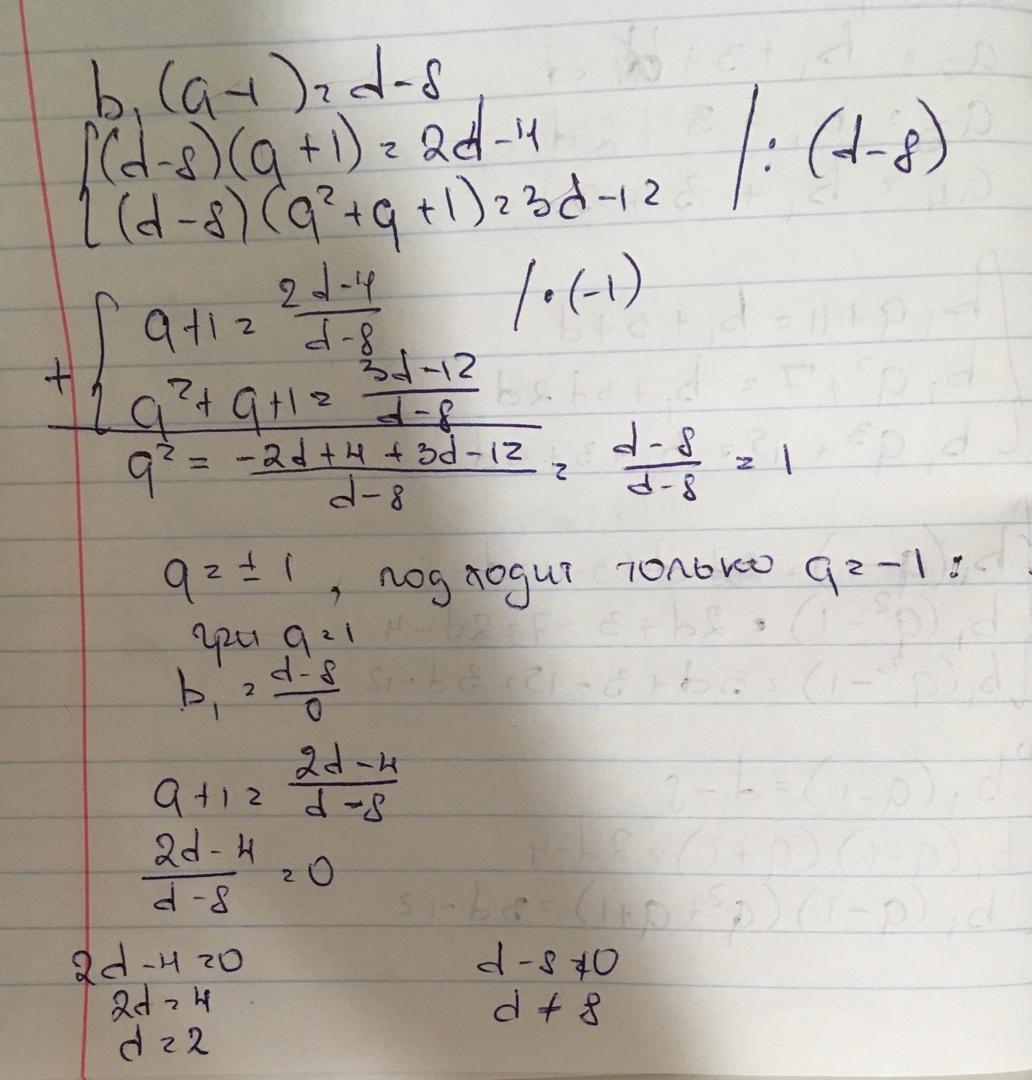 b₁(q-1)=d-8
{(d-8)(q+1)=2d-4 /:(d-8)
{(d-8)(q²+q+1)=3d-12
+{q+1=(2d-4)/(d-8) /·(-1)
{q²+q+1=(3d-12)/(d-8)
q²=(-2d+4+3d-12)/(d-8)=(d-8)/(d-8)=1
q=±1, подходит только q=-1:
при q=1
b₁=(d-8)/0
q+1=(2d-4)/(d-8)
(2d-4)/(d-8)=0
2d-4=0 d-8≠0
2d=4 d≠8
d=2